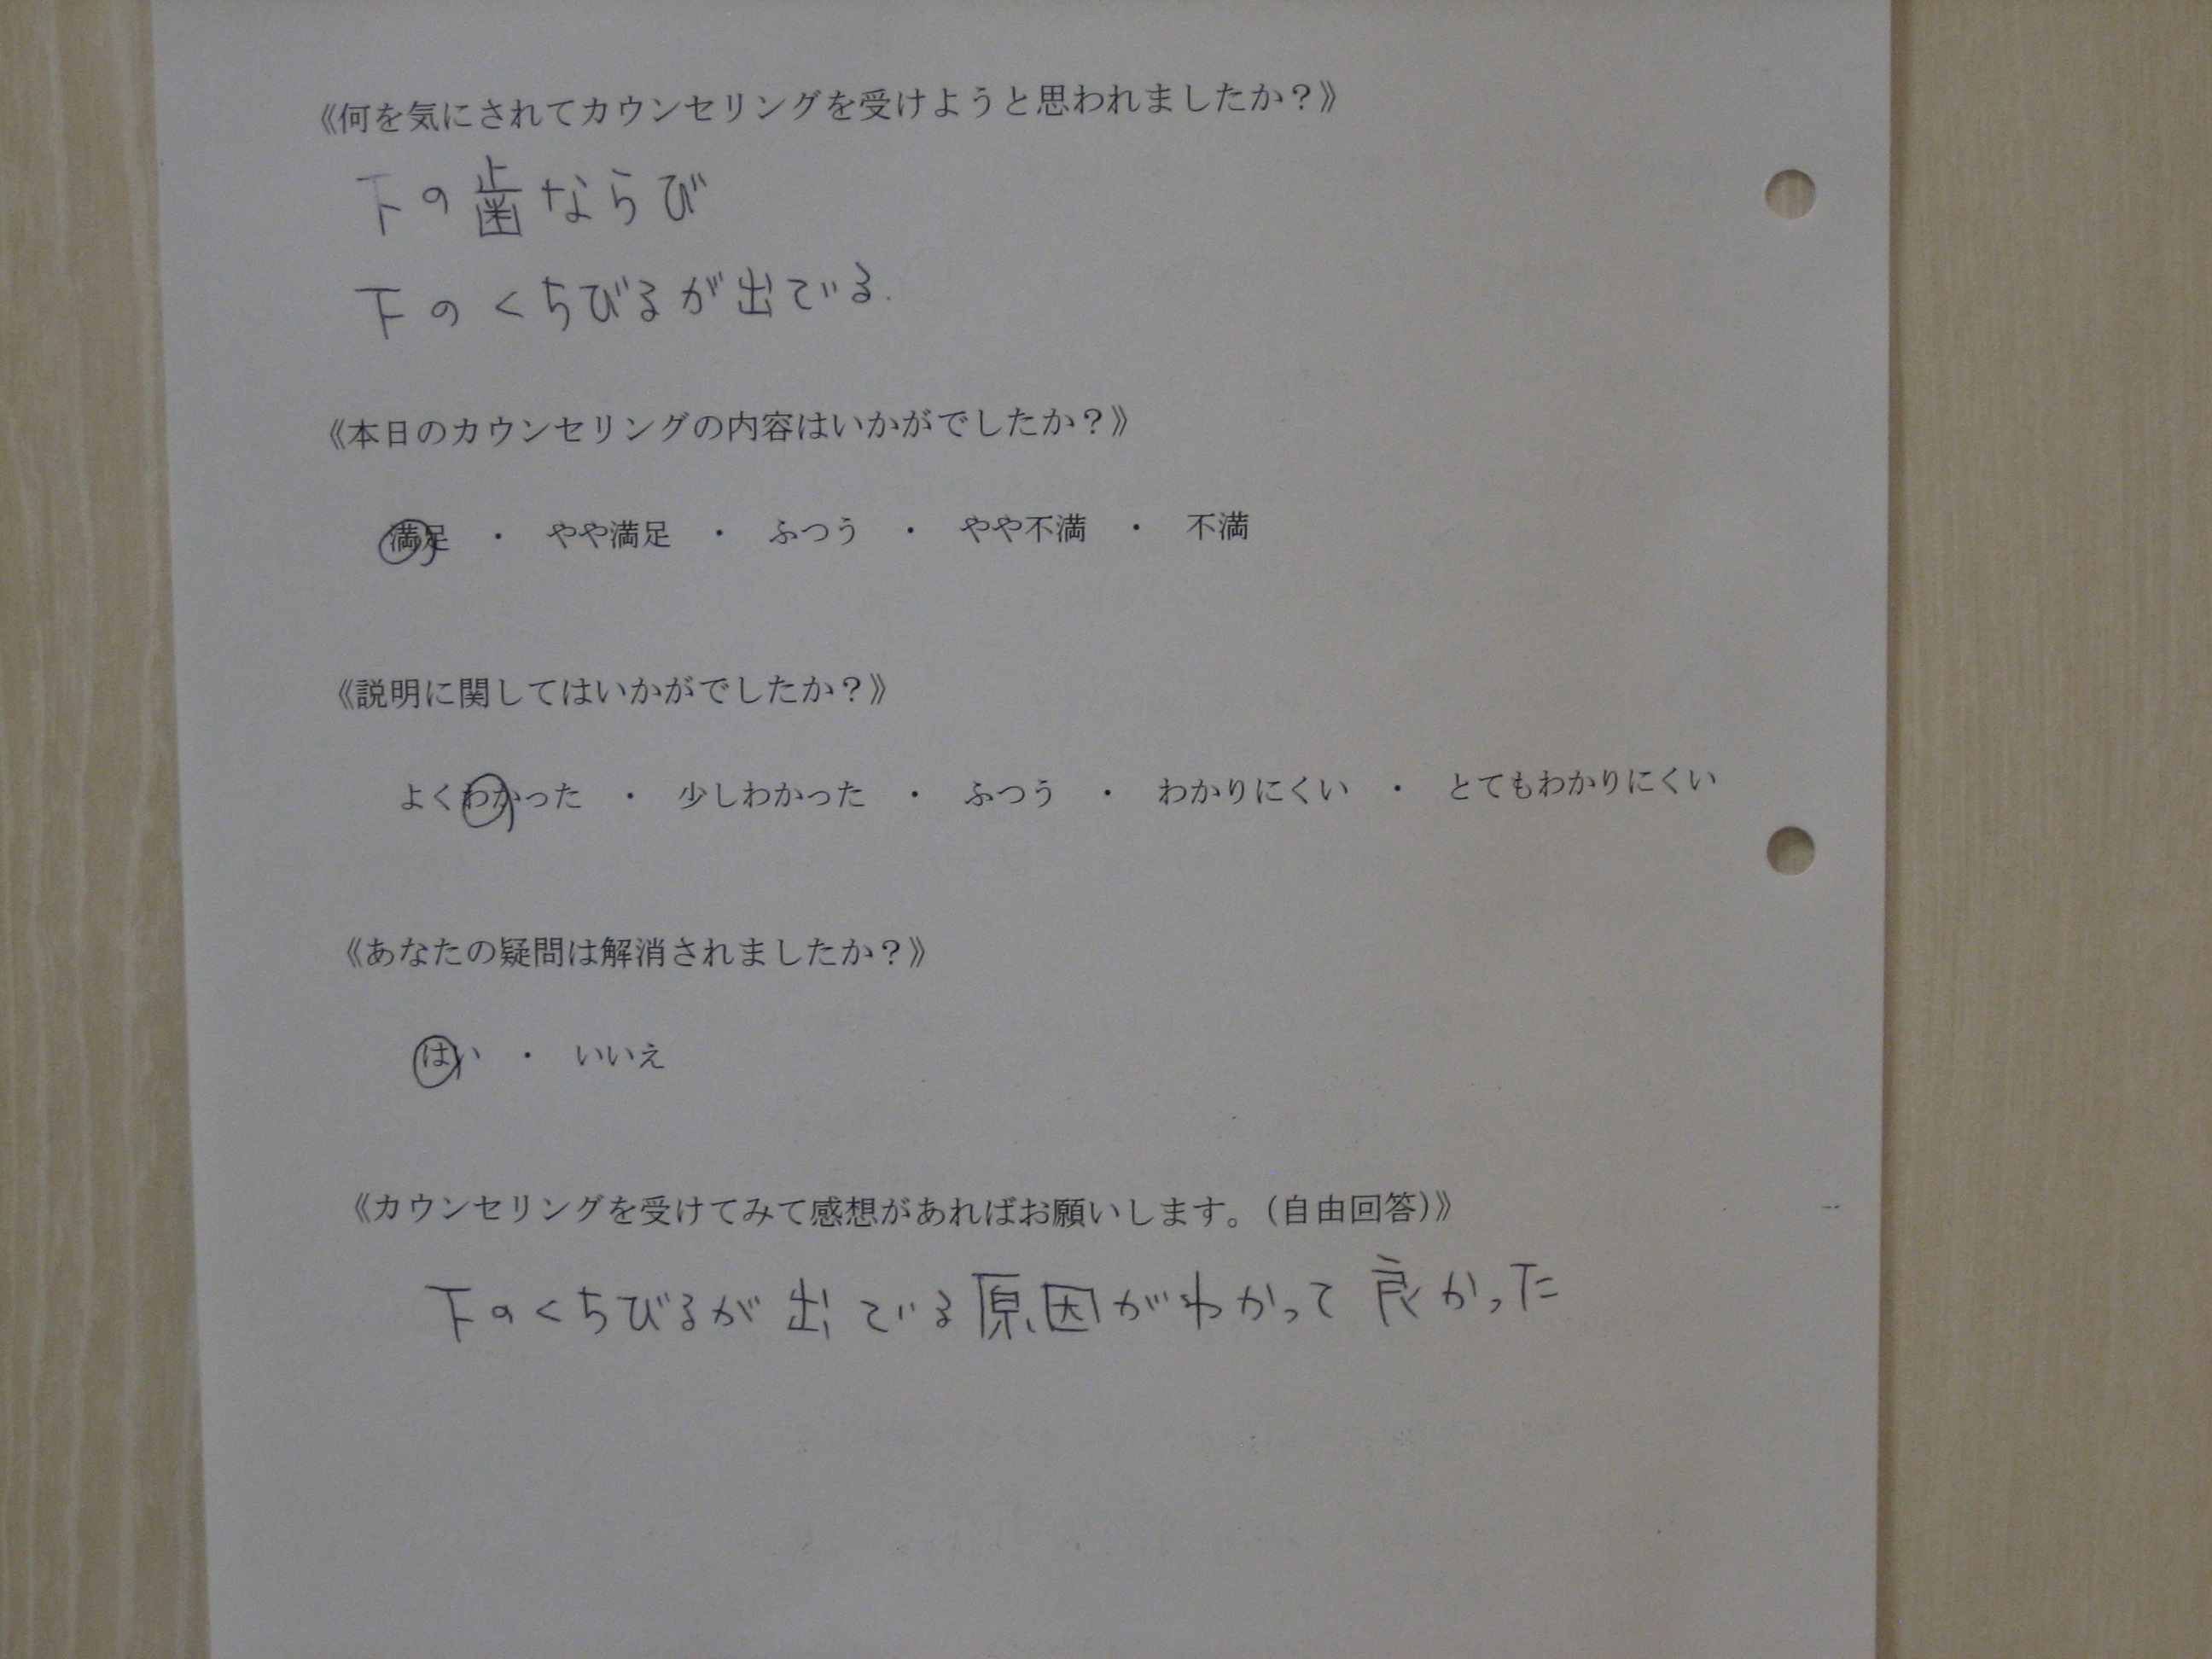 《何を気にされてカウンセリングを受けようと思われましたか？》
下の歯ならび
下のくちびるが出ている.
《本日のカウンセリングの内容はいかがでしたか？》
満足　・　やや満足　・　ふつう　・　やや不満　・　不満
《説明に関してはいかがでしたか？》
よくわかった　・　少しわかった　・　ふつう　・　わかりにくい　・　とてもわかりにくい
《あなたの疑問は解消されましたか？》
はい　・　いいえ
《カウンセリングを受けてみて感想があればお願いします。（自由回答）》
下のくちびるが出ている原因がわかって良かった